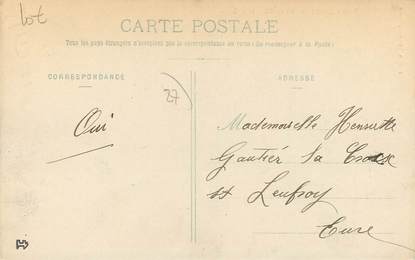 lot
CARTE POSTALE
Tous les pays étrangers n'acceptent pas la correspondance au verso (Se renseigner à la Poste)
CORRESPONDANCE
ADRESSE
27
Oui
Mademoiselle Henriette
Gautier La Croix
St Leufroy
Eure